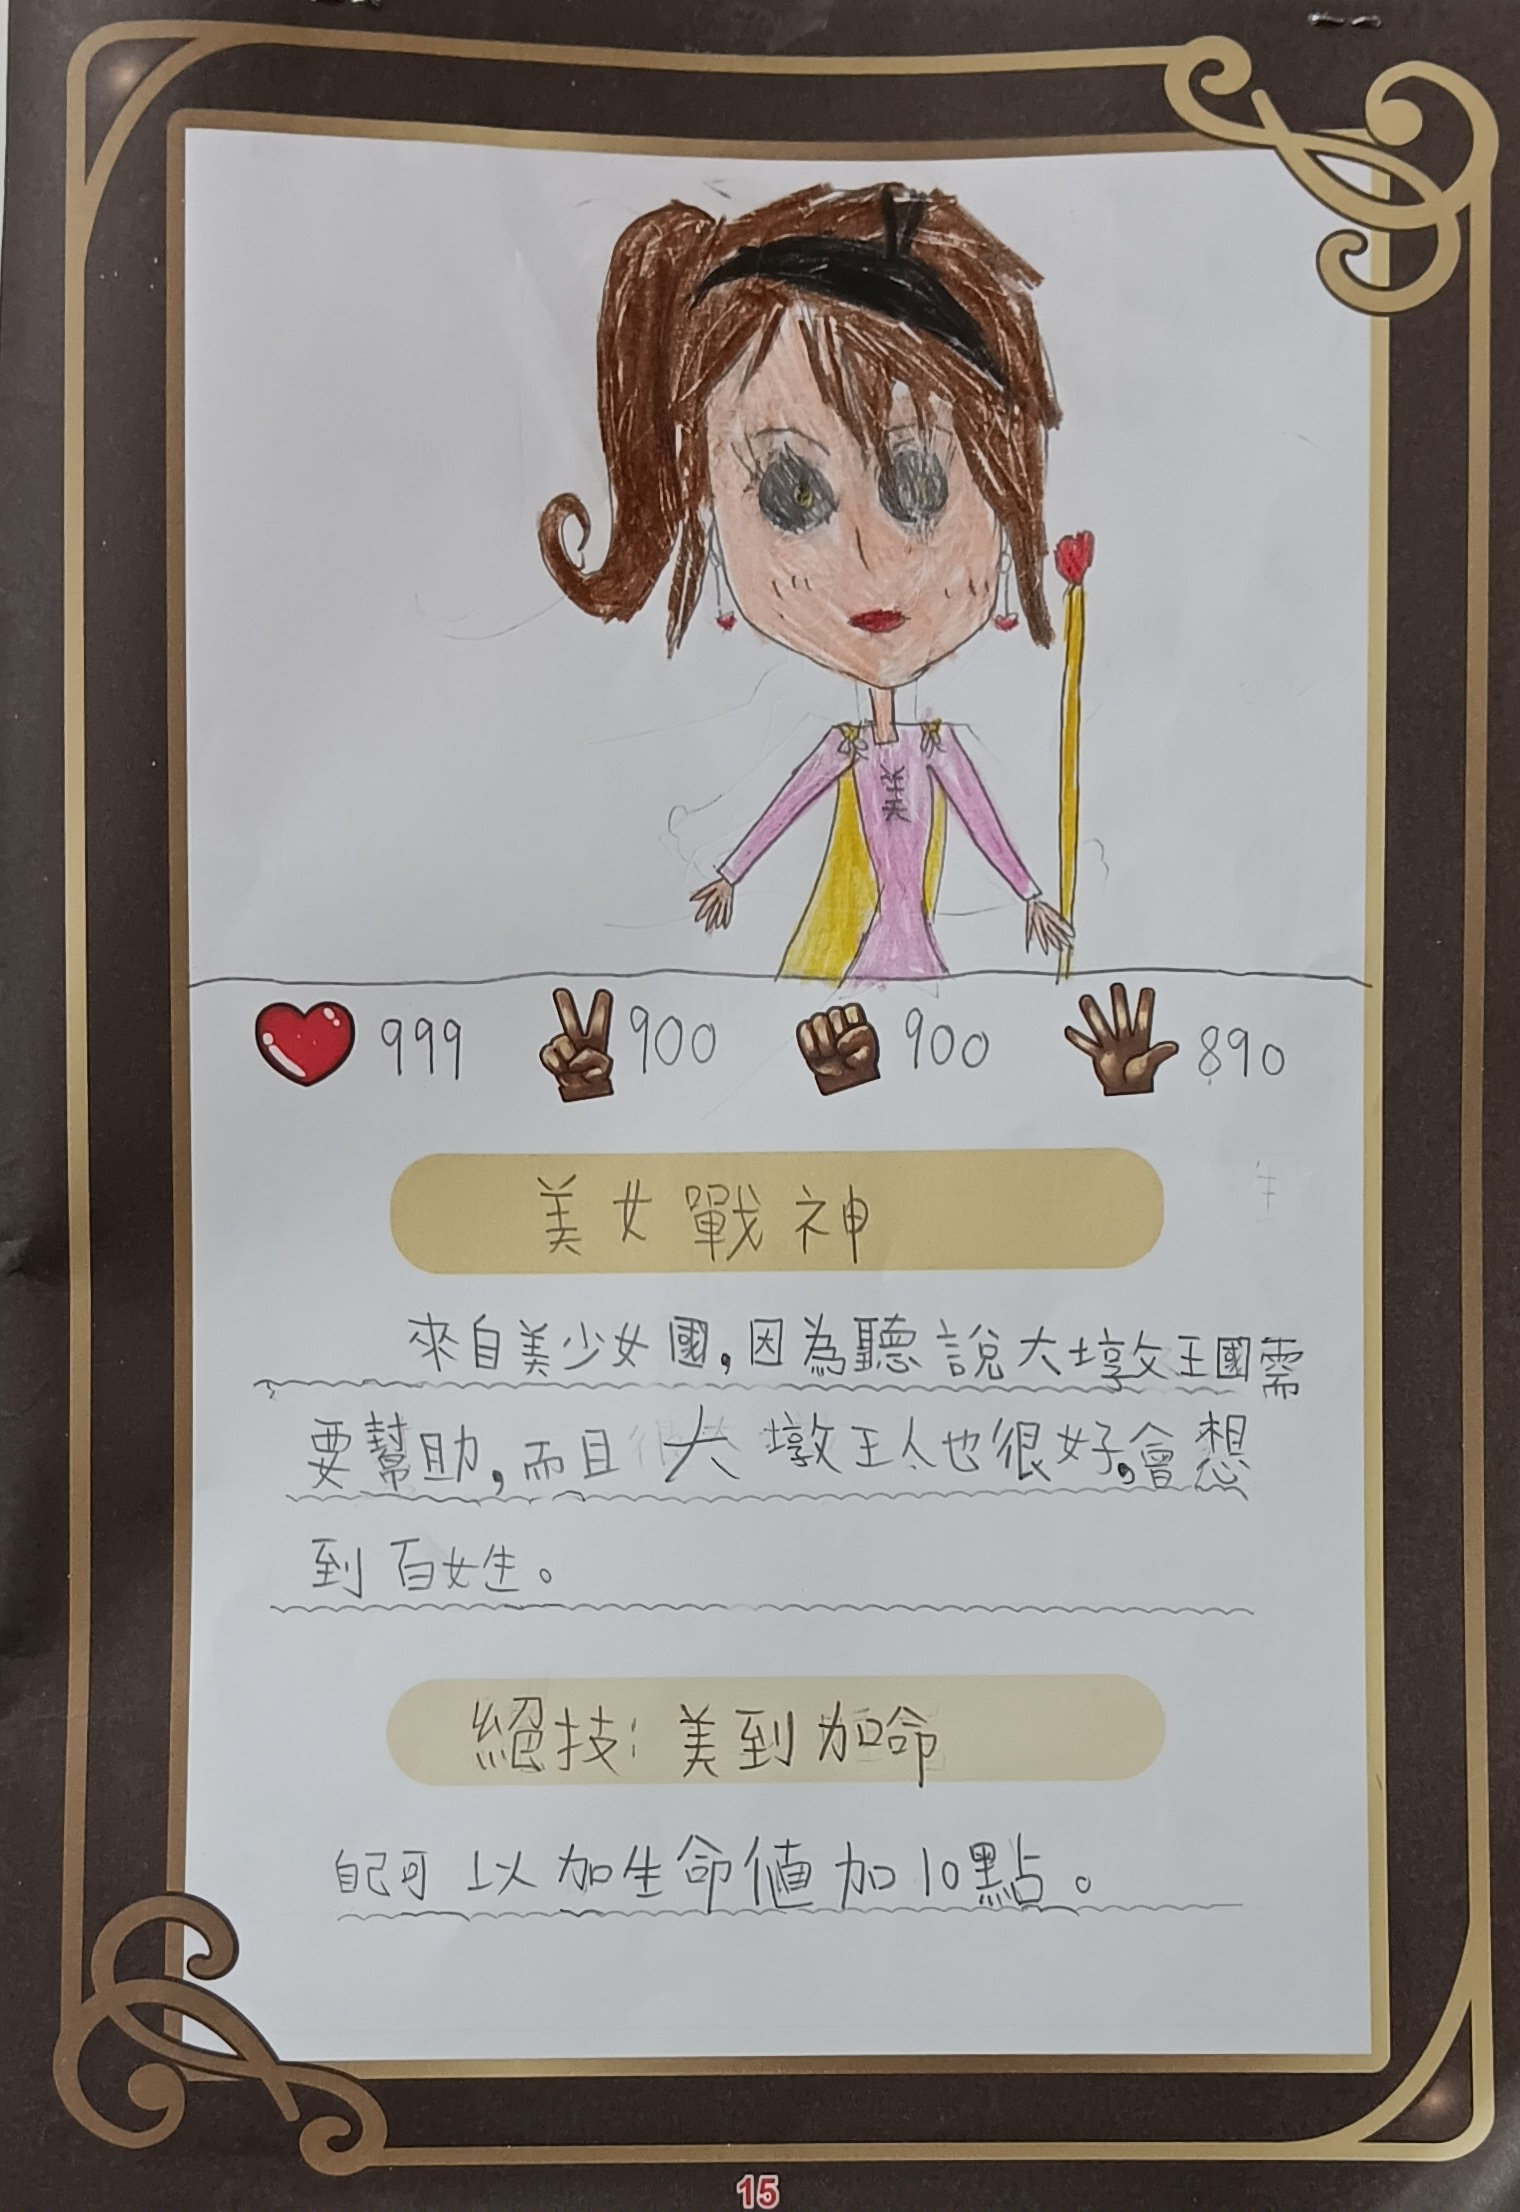 美
999 900 900 890
美女戰神
來自美少女國，因為聽說大墩王國需
要幫助，而且大墩王人也很好。會想
到百姓。
絕技：美到加命
自己可以加生命値加10點。
15